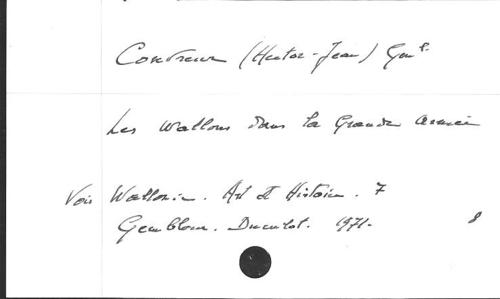 Couvreur (Hector-Jean) Gén^l.
Les Wallons dans la Grande Armée
Voir Wallonie. Art et Histoire. 7
Gembloux. Duculot. 1971.
8